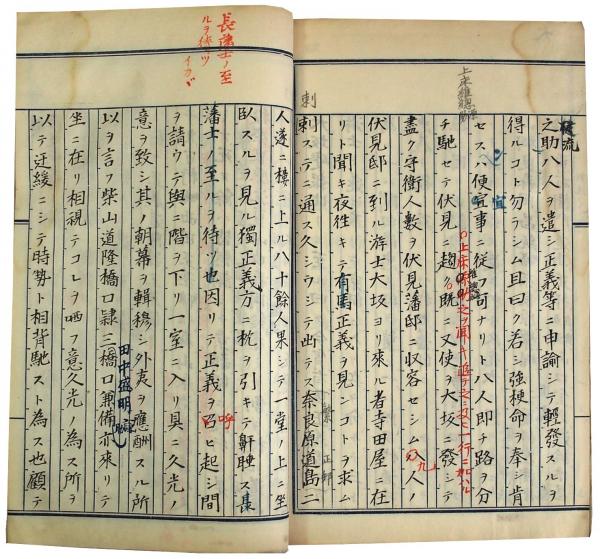 之助八人ヲ遣シ正義等ニ申諭シテ軽發スルヲ
得ルコト勿ラシム且曰ク若シ強梗命ヲ奉シ肯
セスハ便宜事ニ従フ可ナリト八人即チ路ヲ分
チ馳セテ伏見ニ趨ク既ニ又使ヲ大坂ニ發シテ
盡ク守衛人數ヲ伏見藩邸ニ収容セシム八人ノ
伏見邸ニ到ル游士大坂ヨリ來ル者寺田屋ニ在
リト聞キ夜往キテ有馬正義ヲ見ンコトヲ求ム
刺ステニ通ス久シウシテ出テス奈良原道島二
人遂ニ樓ニ上ル八十餘人果シテ一堂上ニ坐
臥スルヲ見ル獨正義方ニ枕ヲ引キテ鼾睡ス長
藩士ノ至ルヲ待ツ也因リテ正義ヲ呼ヒ起シ間
ヲ請ウテ與ニ階ヲ下リ一室ニ入リ具ニ久光ノ
意ヲ致シ其ノ朝幕ヲ輯穆シ外夷ヲ應酬スル所
以ヲ言フ柴山道隆橋口隷三橋口兼備亦來リテ
坐ニ在リ相視テコレヲ哂フ意久光ノ為ス所ヲ
以テ迂緩ニシテ時勢ト相背馳スト為ス也顧テ
長藩士ノ至
ルヲ待ツ
イカヾ
刺
宜
呼
田中盛明